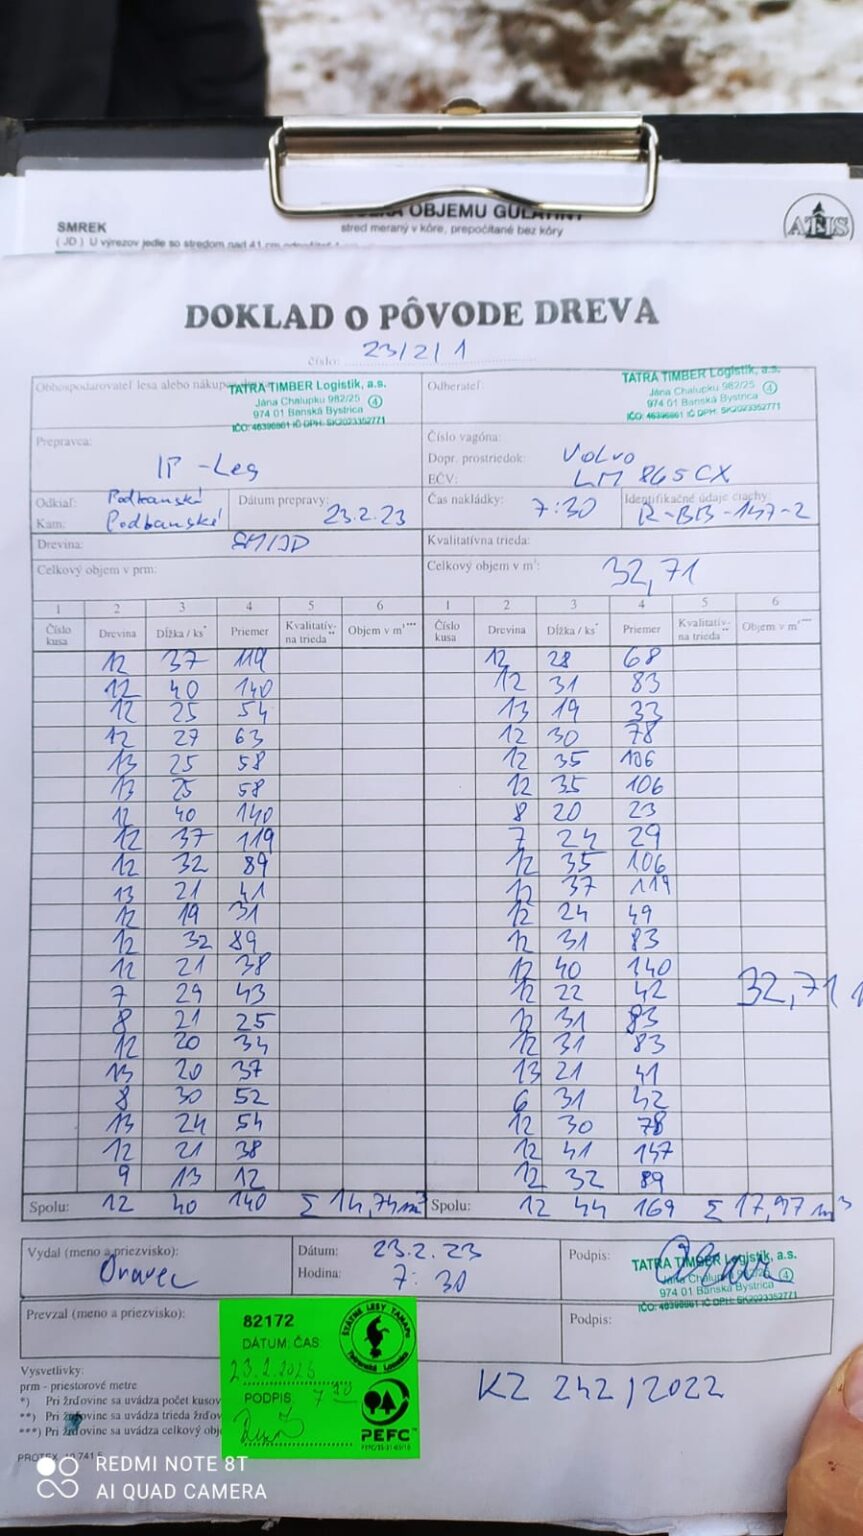 OBJEMU GUĽATINY
SMREK
stred meraný v kôre, prepočítané bez kôry
( JD ) U výrezov jedle so stredom nad 41 cm
ATEIS
DOKLAD O PÔVODE DREVA
číslo: 23/2/1
Obhospodarovateľ lesa alebo nákup
TATRA TIMBER Logistik, a.s.
Jána Chalupku 982/25
4
974 01 Banská Bystrica
IČO: 46396861 IČ DPH: SK2023352771
Odberateľ:
TATRA TIMBER Logistik, a.s.
Jána Chalupku 982/25
4
974 01 Banská Bystrica
IČO: 46396861 IČ DPH: SK2023352771
Prepravca:
IP-Les
Číslo vagóna:
Dopr. prostriedok: Volvo
EČV: LM 865CX
Odkiaľ: Podbanské
Kam: Podbanské
Dátum prepravy: 23.2.23
Čas nakládky: 7:30
Identifikačné údaje ciachy:
R-BB-147-2
Drevina: SM/JD
Kvalitatívna trieda:
Celkový objem v prm:
Celkový objem v m³: 32,71
1 2 3 4 5 6 1 2 3 4 5 6
Číslo kusa Drevina Dĺžka / ks* Priemer Kvalitatív-na trieda** Objem v m³*** Číslo kusa Drevina Dĺžka / ks* Priemer Kvalitatív-na trieda** Objem v m³***
12 37 119 12 28 68
12 40 140 12 31 83
12 25 54 13 19 33
12 27 63 12 30 78
13 25 58 12 35 106
13 25 58 12 35 106
12 40 140 8 20 23
12 37 119 7 24 29
12 32 89 12 35 106
13 21 41 12 37 119
12 19 31 12 24 49
12 32 89 12 31 83
12 21 38 12 40 140
7 29 43 12 22 42 32,71
8 21 25 12 31 83
12 20 34 12 31 83
13 20 37 13 21 41
8 30 52 6 31 42
13 24 54 12 30 78
12 21 38 12 41 147
9 13 12 12 32 89
Spolu: 12 40 140 Σ 14,74m³ Spolu: 12 44 169 Σ 17,97m³
Vydal (meno a priezvisko):
Oravec
Dátum: 23.2.23
Hodina: 7:30
Podpis:
TATRA TIMBER Logistik, a.s.
Jána Chalupku 982/25
4
974 01 Banská Bystrica
IČO: 46396861 IČ DPH: SK2023352771
Prevzal (meno a priezvisko):
Podpis:
82172
DÁTUM, ČAS:
PODPIS
ŠTÁTNE LESY TANAPu
Tatranská Lomnica
PEFC
Vysvetlivky:
prm - priestorové metre
*) Pri žrďovine sa uvádza počet kusov
**) Pri žrďovine sa uvádza trieda žrďov
***) Pri žrďovine sa uvádza celkový obj
KZ 242/2022
REDMI NOTE 8T
AI QUAD CAMERA